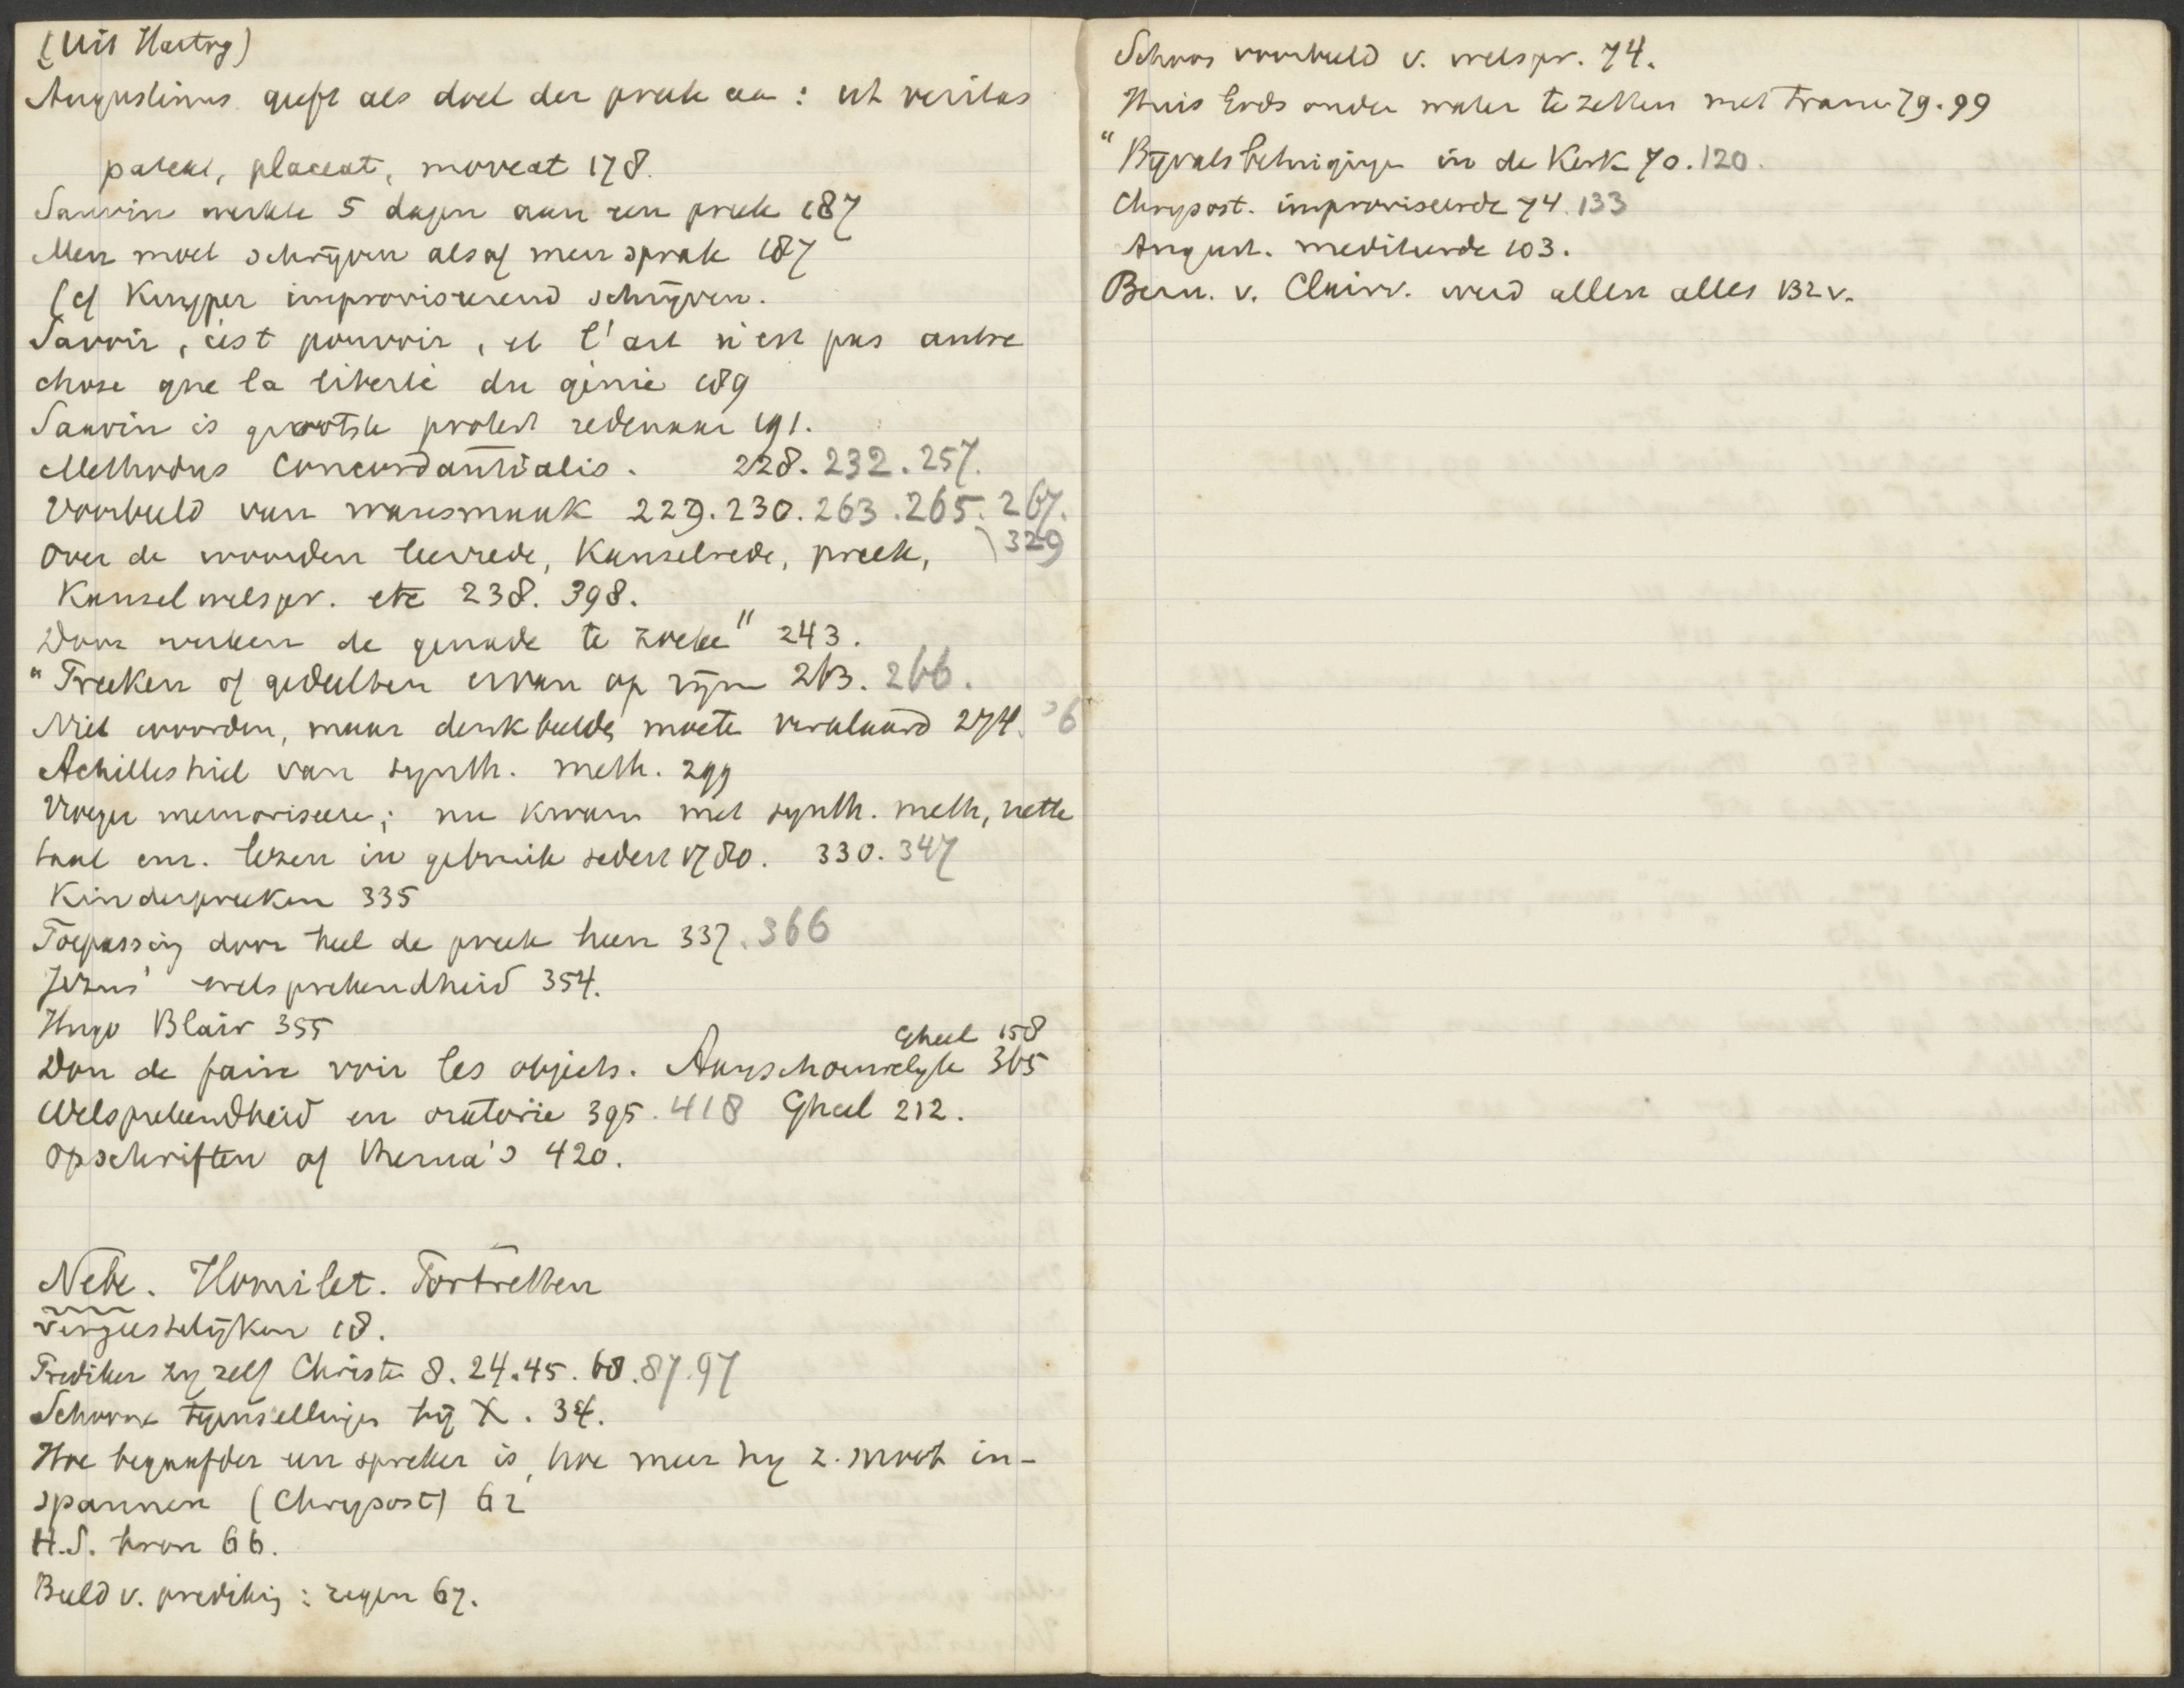 (Uit Hartog)
Augustinus geeft als doel der preek aan : ut veritas
pateat, placeat, moveat 178.
Saurin werkte 5 dagen aan een preek 187
Men moet schrijven alsof men sprak 187
(cf Kuyper improviseerend schrijven.
Savoir, c'est pouvoir, et l'art n'est pas autre
chose que la liberté du génie 189
Saurin is grootste protest redenaar 191.
Methodus Concordantialis. 228. 232. 257.
Voorbeeld van wansmaak 229. 230. 263. 265. 267.
329
Over de woorden leerrede, Kanselrede, preek,
Kanselwelspr. etc 238. 398.
Door werken de genade te zoeke" 243.
"Preeken of gedeelten ervan op rijm 263. 266.
Niet woorden, maar denkbeelde moete verklaard 274.
Achilleshiel van synth. meth. 299
Vroeger memoriseere; nu kwam met synth. meth, nette
taal enz. lezen in gebruik sedert 1780. 330. 347
Kinderpreeken 335
Toepassing door heel de preek heen 337. 366
Jezus' welsprekendheid 354.
Hugo Blair 355
Gheel 158
Don de faire voir les objects. Aanschouwelijk 365
Welsprekendheid en oratorie 395. 418 Gheel 212.
Opschriften of thema's 420.
Nebe. Homilet. Portretten
vergeestelijken 18.
Prediker zij zelf Christen 8. 24. 45. 68. 87. 97
Schoone tegenstellingen bij X. 34.
Hoe begaafder een spreker is, hoe meer hij z. moet in-
spannen (Chrysost) 62
H.S. bron 66.
Beeld v. prediking : regen 67.
Schoon voorbeeld v. welspr. 74.
Huis Gods onder water te zetten met tranen 79. 99
"Bijvalsbetuigingen in de Kerk 70. 120.
Chrysost. improviseerde 74. 133
August. mediteerde 103.
Bern. v. Clairv. werd allen alles 132 v.